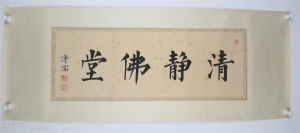 清静佛堂
溥儒